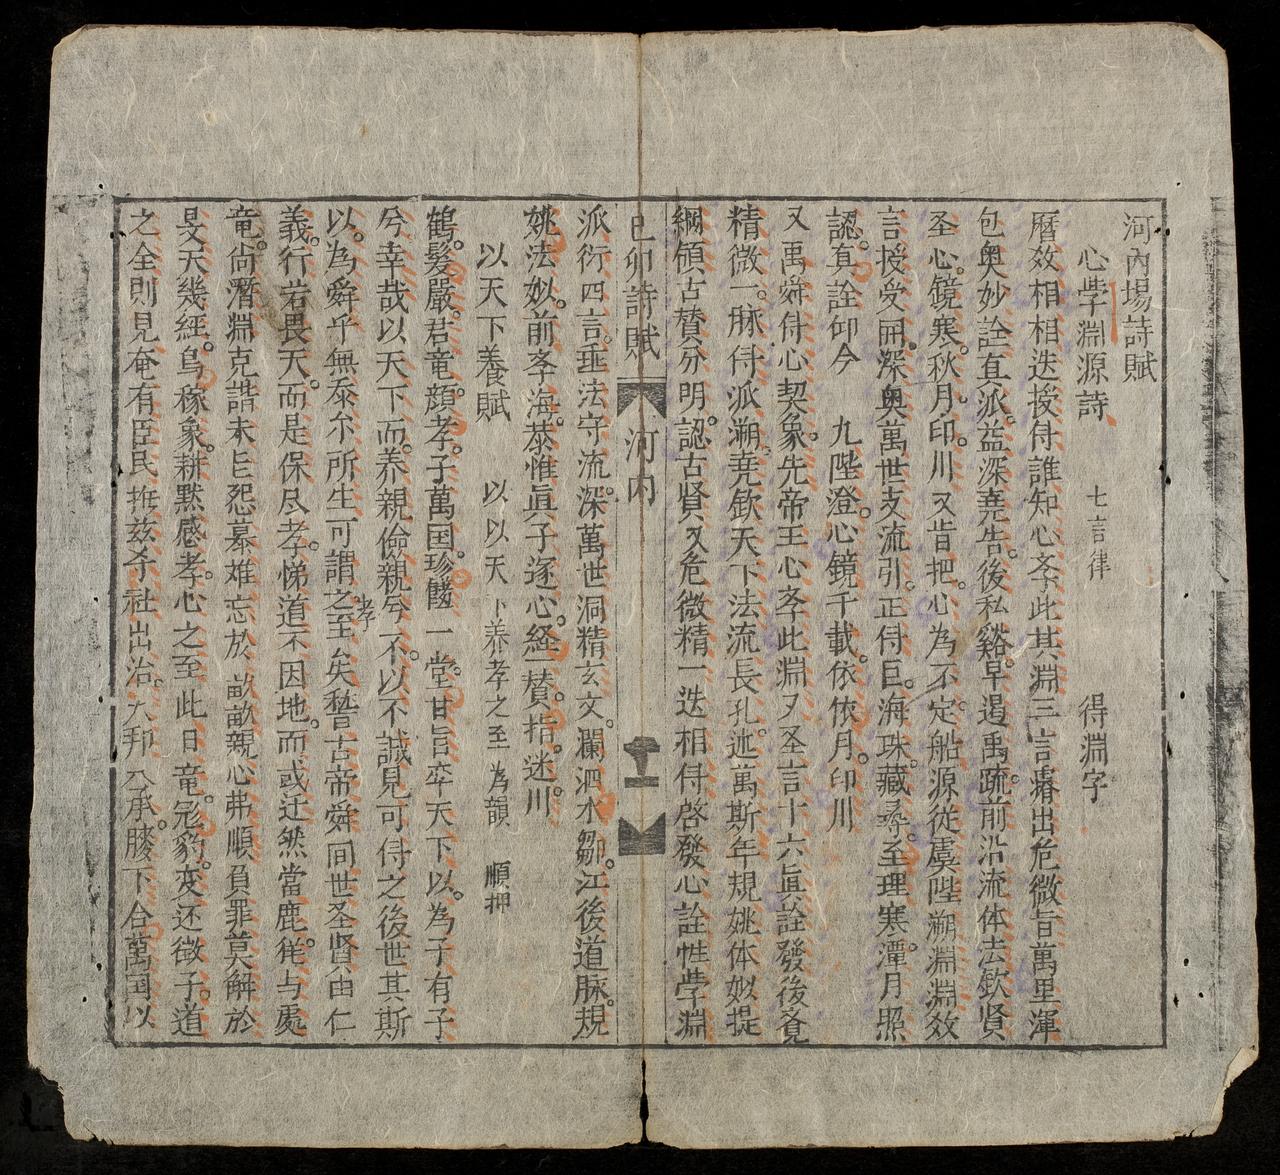 河內場詩賦
心斈淵源詩 七言律 得淵字
曆效相相迭授侍誰知心斈此其淵三言瘠出危微旨萬里渾
包奥妙詮直派益深堯告後私谿早遏禹疏前沿流体法欽贤
圣心鏡寒秋月印川又肯把心為不定船源從虞陛溯淵淵效
言授受開深奥萬世支流引正侍巨海珠藏尋至理寒潭月照
認直詮卯今 九陛澄心鏡千載依依月印川
又禹舜侍心契象先帝王心斈此淵又圣言十六眞詮發後覺
精微一脉侍派溯堯欽天下法流長孔迯萬斯年規姚体姒提
綱領古賛分明認古贤又危微精一迭相侍啓發心詮性斈淵
己卯詩賦 河内 十一
派衍四言垂法守流深萬世洞精玄文瀾泗水鄒江後道脉規
姚法姒前斈海恭惟眞子逐心経一賛指迷川
以天下養賦 以以天下養孝之至為韻 順押
鶴髮嚴君竜顔孝子萬国珍饈一堂甘旨卒天下以為子有子
兮幸哉以天下而养親儉親兮不以不誠見可侍之後世其斯
以為舜乎無忝尒所生可謂之至矣孝嵇古帝舜間世圣贤由仁
義行若畏天而是保尽孝悌道不因地而或迁然當鹿㹠与處
竜尙潛淵克諧未㠯怨慕难忘於畝畝親心弗順負罪莫觧於
旻天幾経鳥稼象耕黙感孝心之至此日竜冠豹变还徵子道
之全則見奄有臣民拞玆宗社出治大邦入承膝下合萬国以